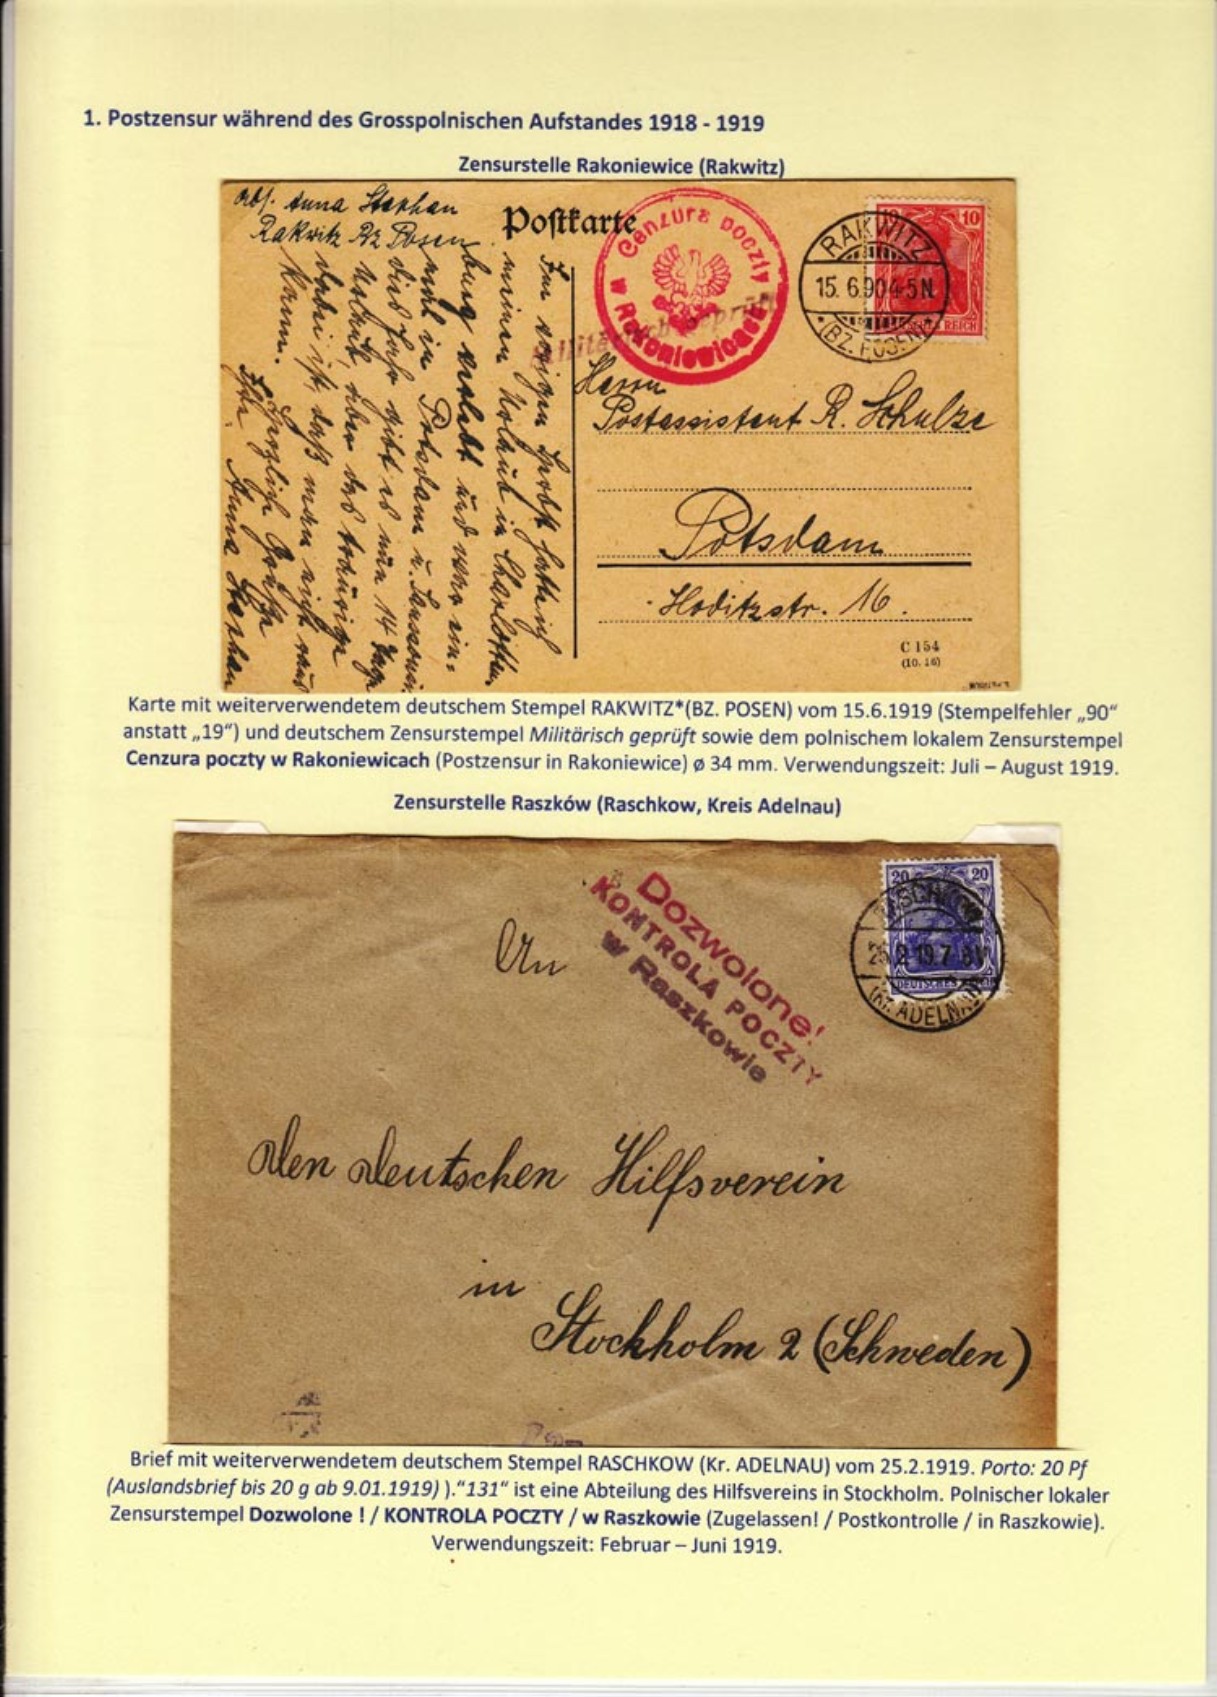 1. Postzensur während des Grosspolnischen Aufstandes 1918 - 1919
Zensurstelle Rakoniewice (Rakwitz)
Abs. Anna Stephan
Rakwitz Bz Posen
Postkarte
Cenzura poczty
w Rakoniewicach
Militärisch geprüft
10
RAKWITZ
15. 6.90 4-5N.
*(BZ. POSEN)*
Im vorigen
meinen Urlaub in Charlotten-
burg verlebt und war ein-
mal in Potsdam u. Sanssouci
dies Jahr gibt es nun 14 Tage
Urlaub, aber das traurige
dabei ist, daß man nicht raus
kann.
Herzliche Grüße
Ihre Anna Stephan
Herrn
Postassistent R. Schulze
Potsdam
Hoditzstr. 16.
C 154
(10. 16)
Karte mit weiterverwendetem deutschem Stempel RAKWITZ*(BZ. POSEN) vom 15.6.1919 (Stempelfehler „90“
anstatt „19“) und deutschem Zensurstempel Militärisch geprüft sowie dem polnischem lokalem Zensurstempel
Cenzura poczty w Rakoniewicach (Postzensur in Rakoniewice) ø 34 mm. Verwendungszeit: Juli – August 1919.
Zensurstelle Raszków (Raschkow, Kreis Adelnau)
Dozwolone!
KONTROLA POCZTY
w Raszkowie
20 20
RASCHKOW
25.2 19.7-8V
DEUTSCHES REICH
(Kr. ADELNAU)
An
den deutschen Hilfsverein
in
Stockholm 2 (Schweden)
Brief mit weiterverwendetem deutschem Stempel RASCHKOW (Kr. ADELNAU) vom 25.2.1919. Porto: 20 Pf
(Auslandsbrief bis 20 g ab 9.01.1919) ).“131“ ist eine Abteilung des Hilfsvereins in Stockholm. Polnischer lokaler
Zensurstempel Dozwolone ! / KONTROLA POCZTY / w Raszkowie (Zugelassen! / Postkontrolle / in Raszkowie).
Verwendungszeit: Februar – Juni 1919.